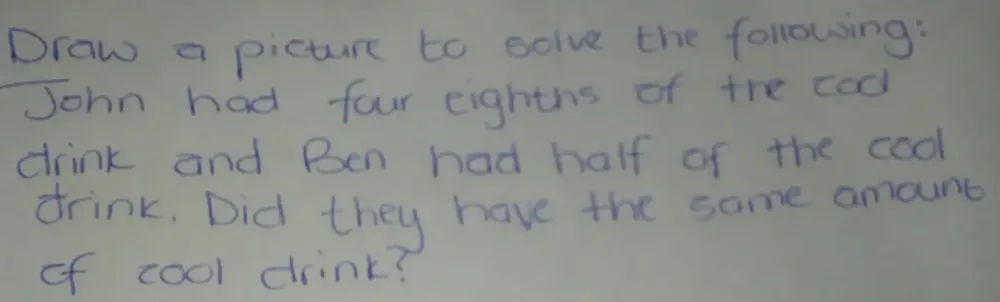 Draw a picture to solve the following:
John had four eighths of the cool
drink and Ben had half of the cool
drink. Did they have the same amount
of cool drink?